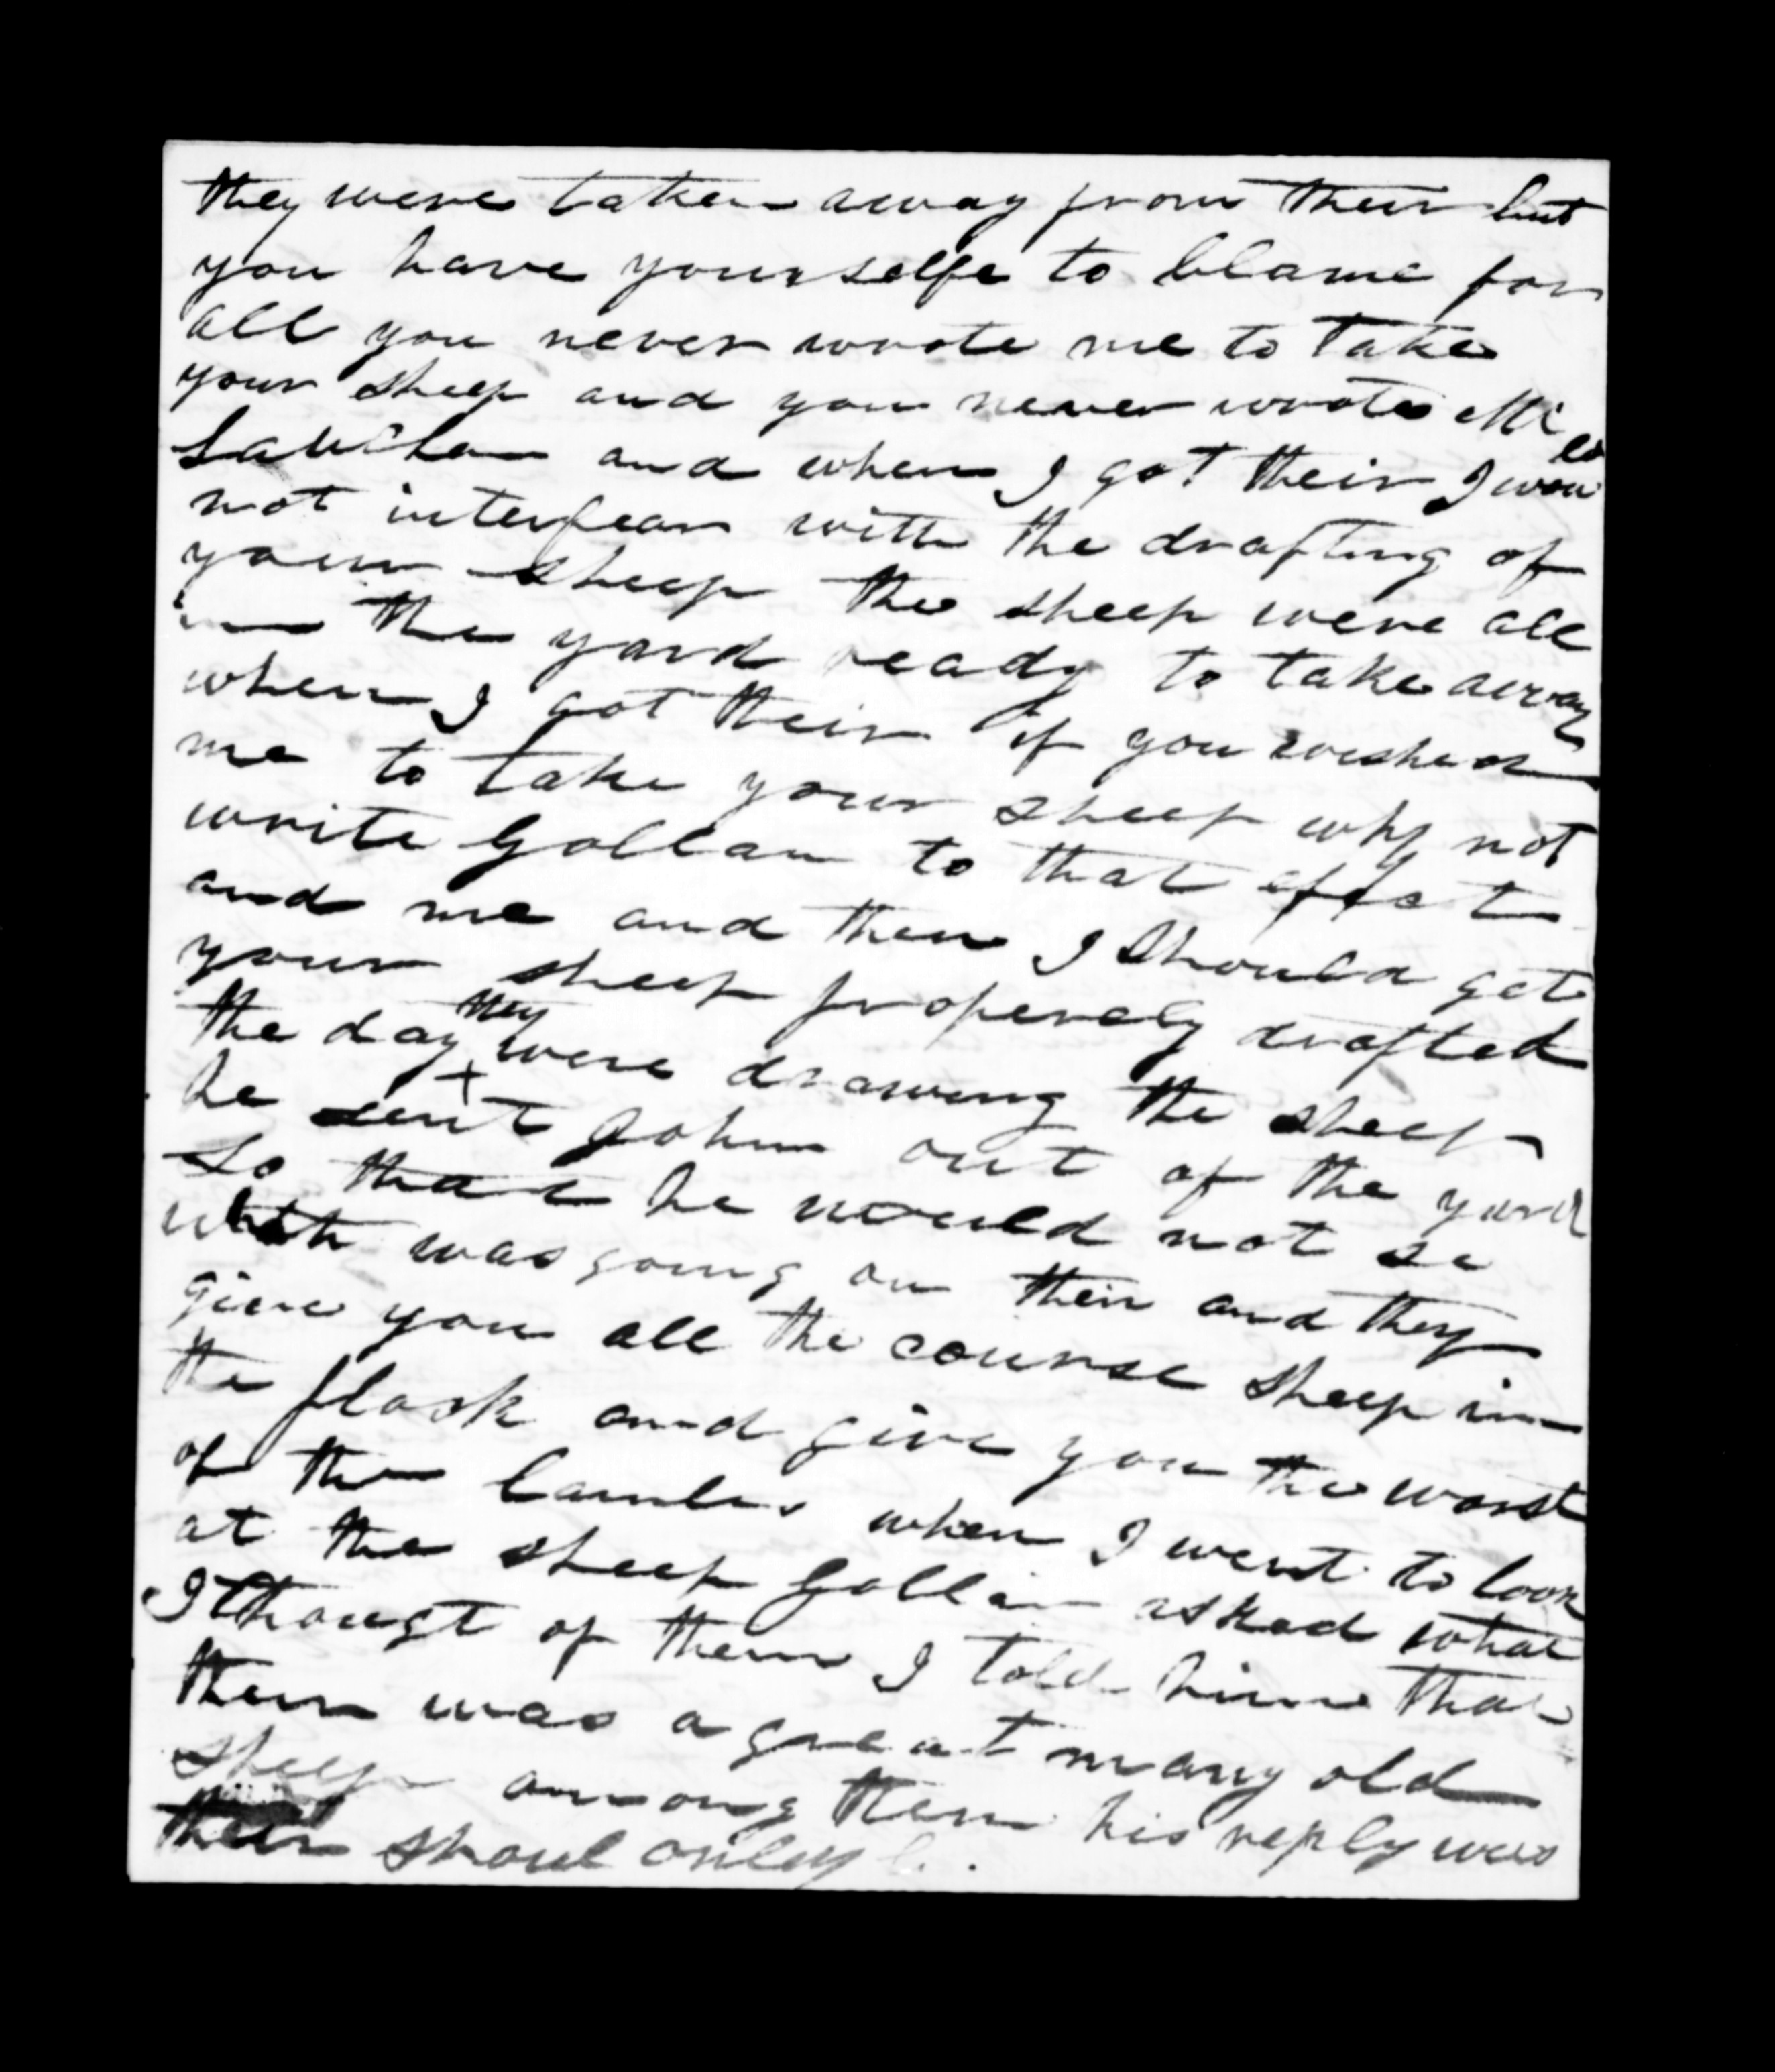 they were taken away from their but
you have yourselfe to blame for
all you never wrote me to take
your sheep and you never wrote Mc
Lauchlan and when I got their I would
not interfear with the drafting of
your sheep the sheep were all
in the yard ready to take away
when I got their if you wished
me to take your sheep why not
write Gollan to that effect
and me and then I should get
your sheep properely drafted
the day they were drawing the sheep
he sent John out of the yard
so that he would not se
what was going on their and they
give you all the course sheep in
the flock and give you the worst
of the lambes when I went to look
at the sheep Gollan asked what
I thougt of them I told him that
their was a great many old
sheep among them his reply was
their shoul only